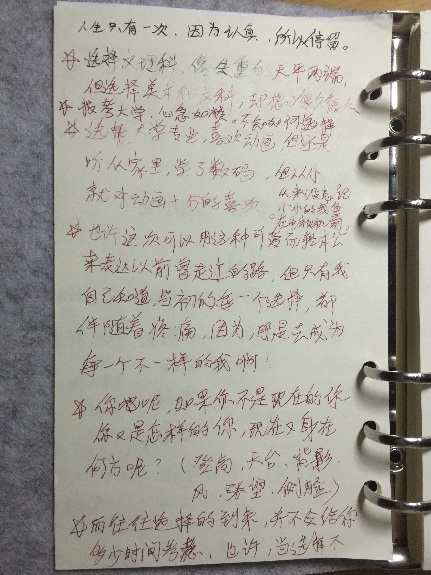 人生只有一次，因为认真，所以停留。
☆选择文理科，像失重的天平两端，
但选择是文和文科，却想了很久很久
☆报考大学，心急如焚。不知如何选择
☆选择大学专业，喜欢动画，但还是
听从家里，学了数码，但从小
就对动画十分的喜欢
☆也许这次可以用这种可看而
来表达以前曾走过的路，但只有我
自己知道当初的每一个选择，都
伴随着疼痛，因为，那是去成为
每一个不一样的我啊！
☆你呢呢，如果你不是现在的你
你又是怎样的你，现在又身在
何方呢？（登高、天台、背影、
风、眺望、侧脸）
☆而往往抉择的到来，并不会给你
多少时间考虑，也许，当选择不